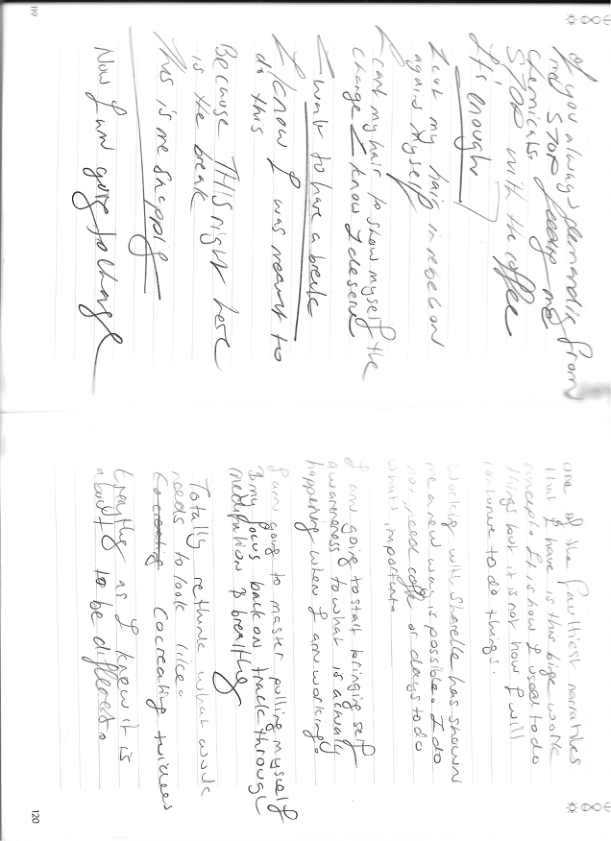 119
of you always demanding from
me STOP feeding me
chemicals.
STOP with the coffee
It's enough
I cut my hair in rebellion
against myself
I cut my hair to show myself the
change I know I deserve
I want to have a break
I know I was meant to
do this
Because THIS right here
is the break
This is me snapping
Now I am going to change
one of the faultiest narratives
that I have is this binge work
concept. It is how I used to do
things but it is not how I will
continue to do things.
Working with Sharelle has shown
me a new way is possible. I do
not need coffee or days to do
what's important.
I am going to start bringing self
awareness to what is always
happening when I am working.
I am going to master pulling myself
my focus back on track through
meditation & breathing
Totally rethink what work
needs to look like.
Cocreating Cocreating
as I knew it is
about to be different.
120